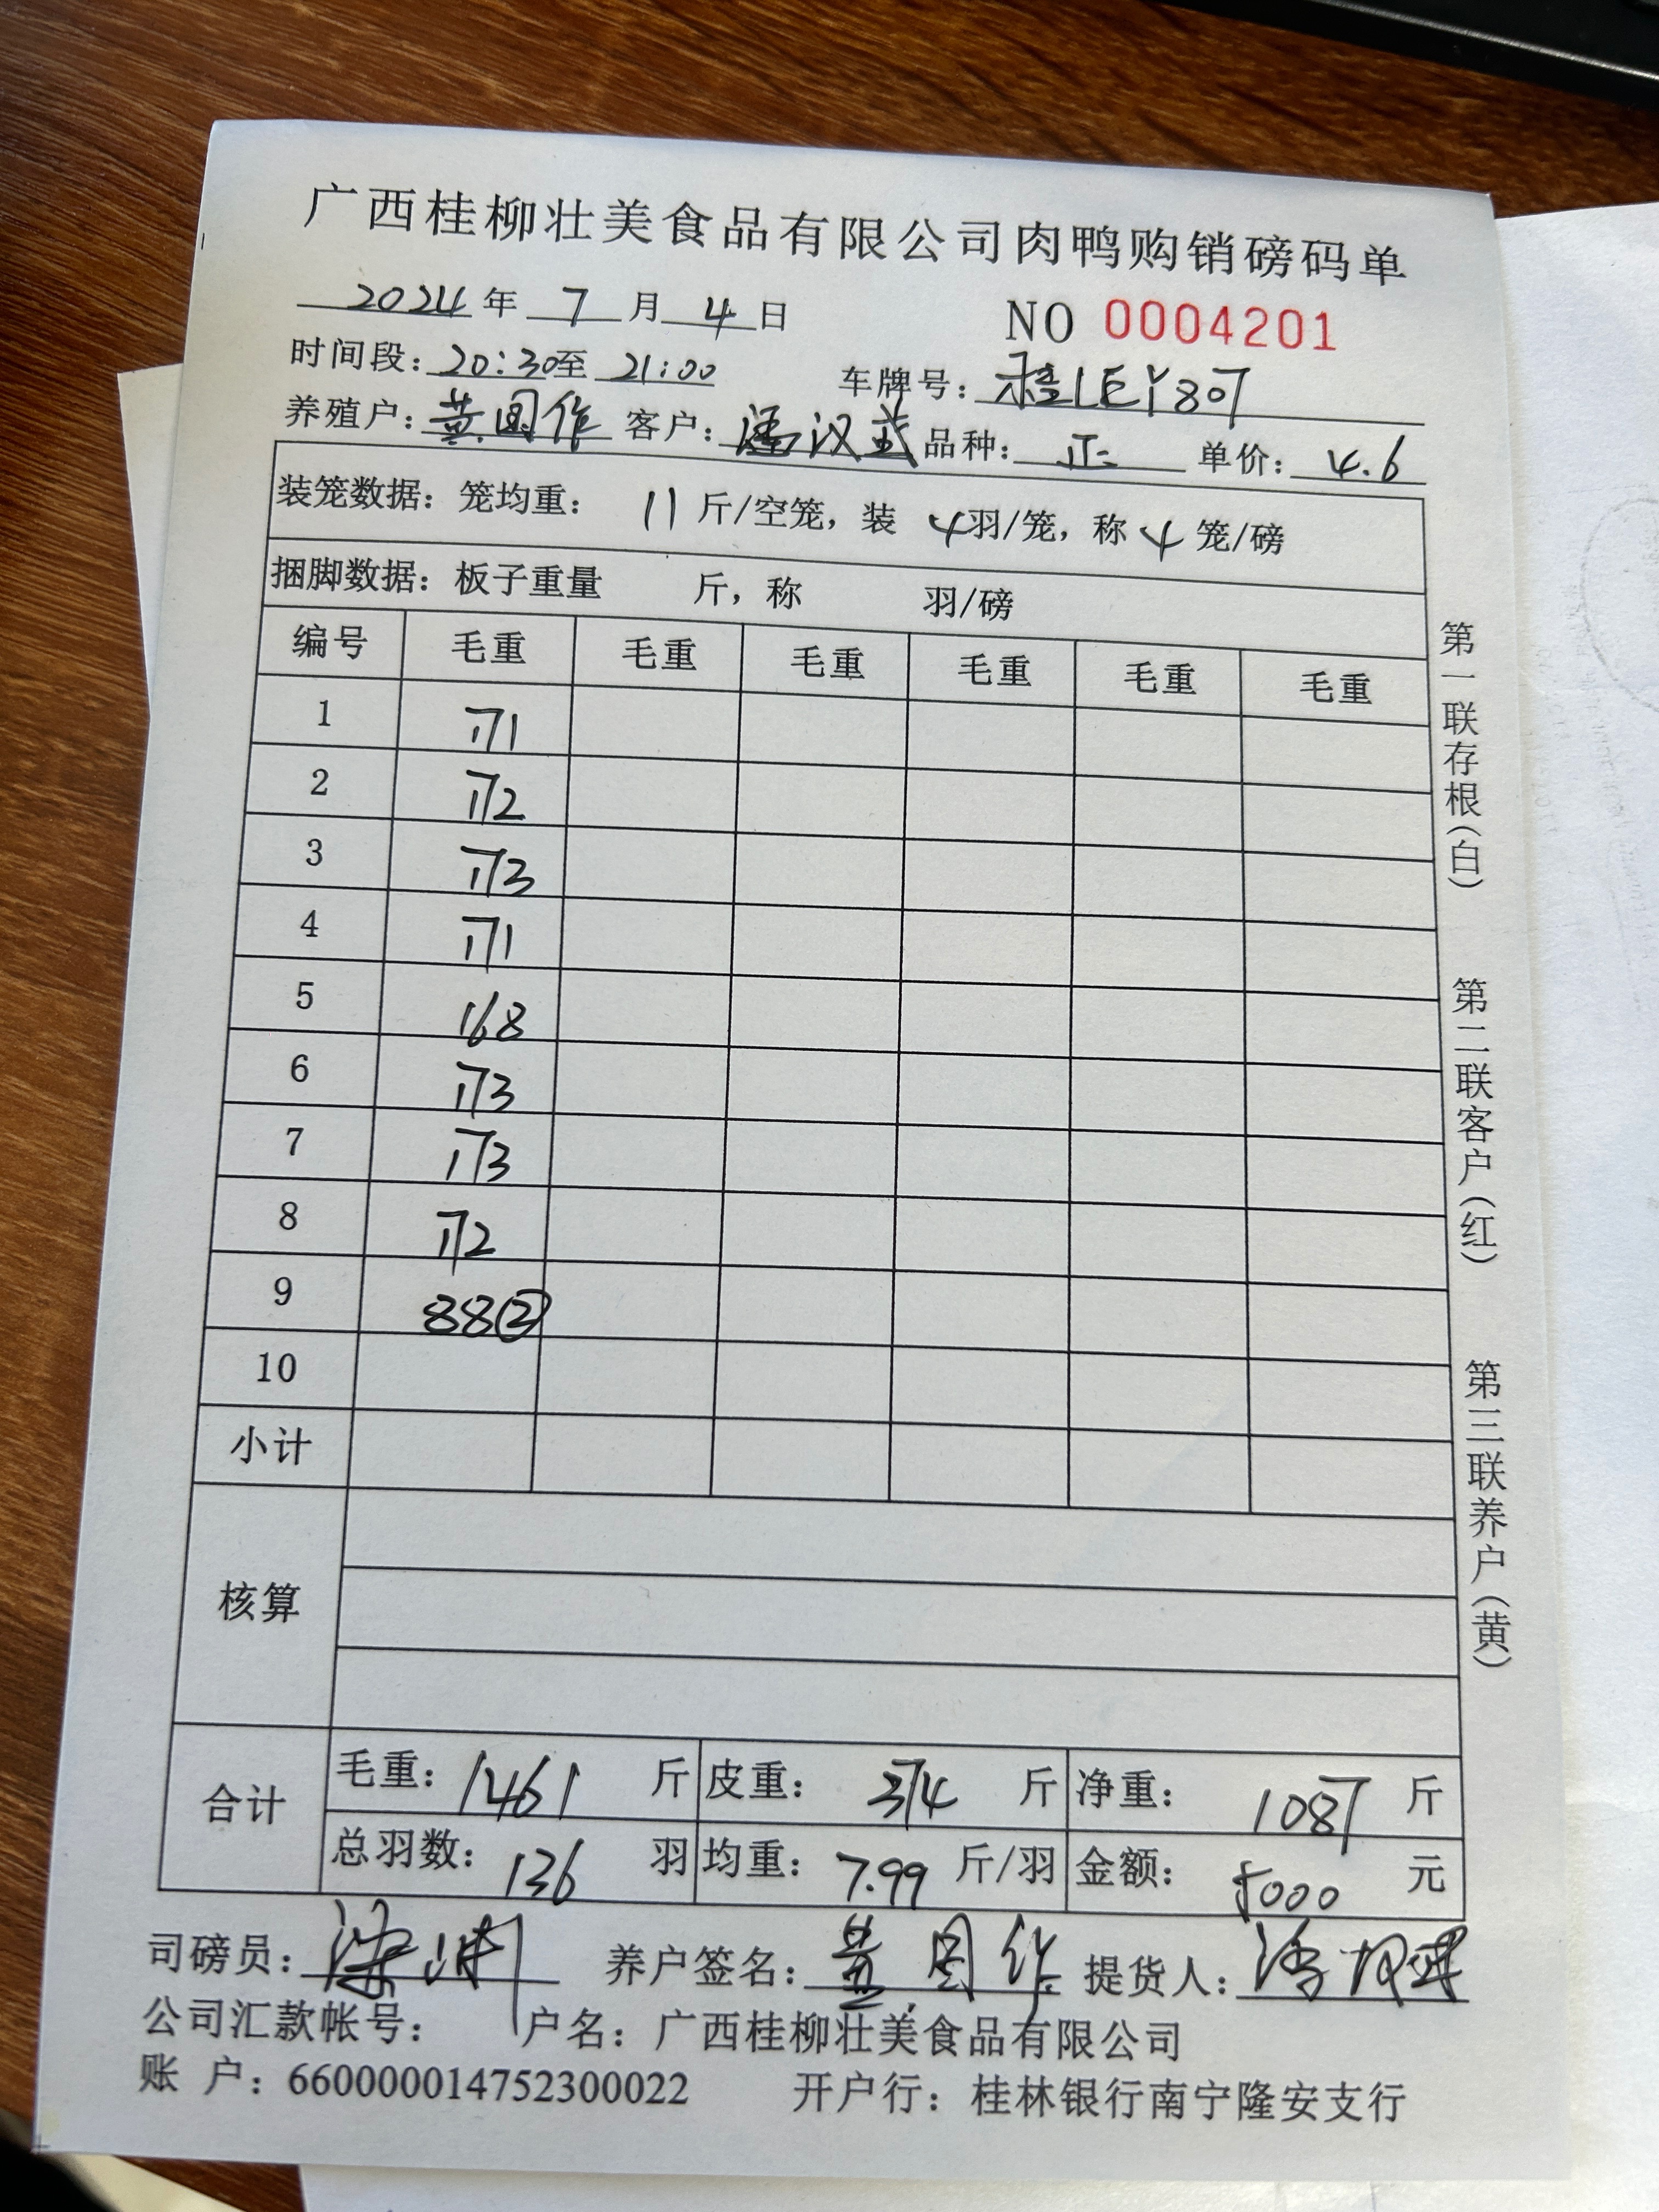 广西桂柳壮美食品有限公司肉鸭购销磅码单
2024年 7月 4日 NO 0004201
时间段：20:30至 21:00 车牌号：桂LEY807
养殖户：黄国作 客户：潘汉武 品种：正 单价：4.6
装笼数据：笼均重： 11 斤/空笼，装 4羽/笼，称 4 笼/磅
捆脚数据：板子重量 斤，称 羽/磅
编号 毛重 毛重 毛重 毛重 毛重 毛重
1 171
2 172
3 173
4 171
5 168
6 173
7 173
8 172
9 88②
10
小计
核算
合计
毛重：1461 斤 皮重：374 斤 净重：1087 斤
总羽数：136 羽 均重：7.99 斤/羽 金额：5000 元
司磅员： 养户签名：黄国作 提货人：潘汉武
公司汇款帐号： 户名：广西桂柳壮美食品有限公司
账 户：660000014752300022 开户行：桂林银行南宁隆安支行
第一联存根（白）
第二联客户（红）
第三联养户（黄）